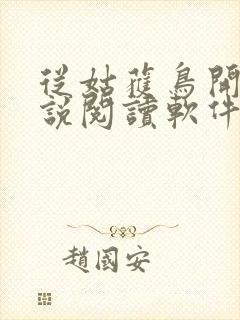 從姑蘇鳥開
說閱讀軟件
趙國安